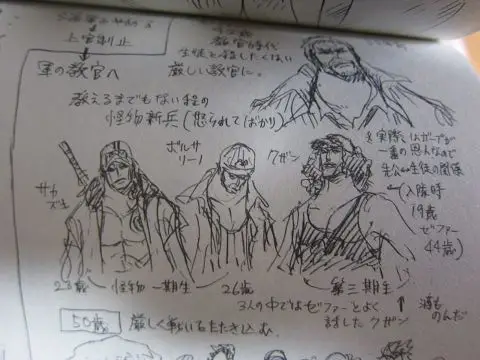 上官制止
教官時代
生徒を殺したくない
軍の教官へ
厳しい教官に。
教えるまでもない程の
怪物新兵(怒られてばかり)
ボルサ
リーノ
クザン
サカ
ズキ
実際はガープが
一番の恩人なので
先公⇔生徒の関係
(入隊時
19歳
ゼファー
44歳)
23歳
怪物一期生
26歳
第三期生
3人の中ではゼファーとよく
話したクザン
酒も
のんだ
50歳
厳しく戦いをたたき込む。